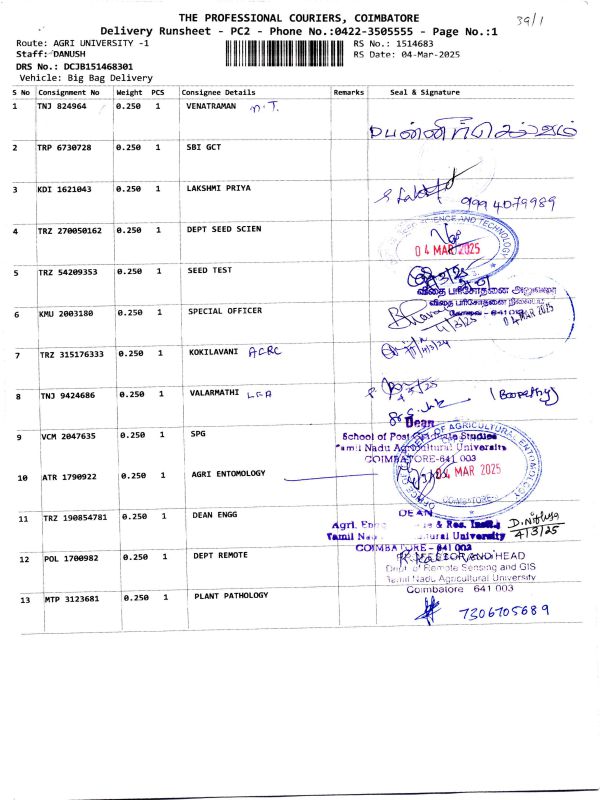 THE PROFESSIONAL COURIERS, COIMBATORE
39/1
Delivery Runsheet - PC2 - Phone No.:0422-3505555 - Page No.:1
Route: AGRI UNIVERSITY -1
RS No.: 1514683
Staff: DANUSH
RS Date: 04-Mar-2025
DRS No.: DCJB151468301
Vehicle: Big Bag Delivery
S No Consignment No Weight PCS Consignee Details Remarks Seal & Signature
1 TNJ 824964 0.250 1 VENATRAMAN n.T.
2 TRP 6730728 0.250 1 SBI GCT
3 KDI 1621043 0.250 1 LAKSHMI PRIYA
9994079989
4 TRZ 270050162 0.250 1 DEPT SEED SCIEN
SCIENCE AND TECHNOLOGY
04 MAR 2025
5 TRZ 54209353 0.250 1 SEED TEST
விதை பரிசோதனை அலுவலர்
விதை பரிசோதனை நிலையம்
கோவை - 641 013
6 KMU 2003180 0.250 1 SPECIAL OFFICER
4/3/25
04 MAR 2025
7 TRZ 315176333 0.250 1 KOKILAVANI ACRC
8 TNJ 9424686 0.250 1 VALARMATHI
(Boopathy)
Dean
9 VCM 2047635 0.250 1 SPG
School of Post Graduate Studies
Tamil Nadu Agricultural University
COIMBATORE-641 003
10 ATR 1790922 0.250 1 AGRI ENTOMOLOGY
OF AGRICULTURAL ENTOMOLOGY
04 MAR 2025
COIMBATORE
11 TRZ 190854781 0.250 1 DEAN ENGG
DEAN
Agri. & Res. Instt.
Tamil University
COIMBATORE - 641 003
4/3/25
12 POL 1700982 0.250 1 DEPT REMOTE
AND HEAD
Dept of Remote Sensing and GIS
Tamil Nadu Agricultural University
Coimbatore 641 003
13 MTP 3123681 0.250 1 PLANT PATHOLOGY
7306705689